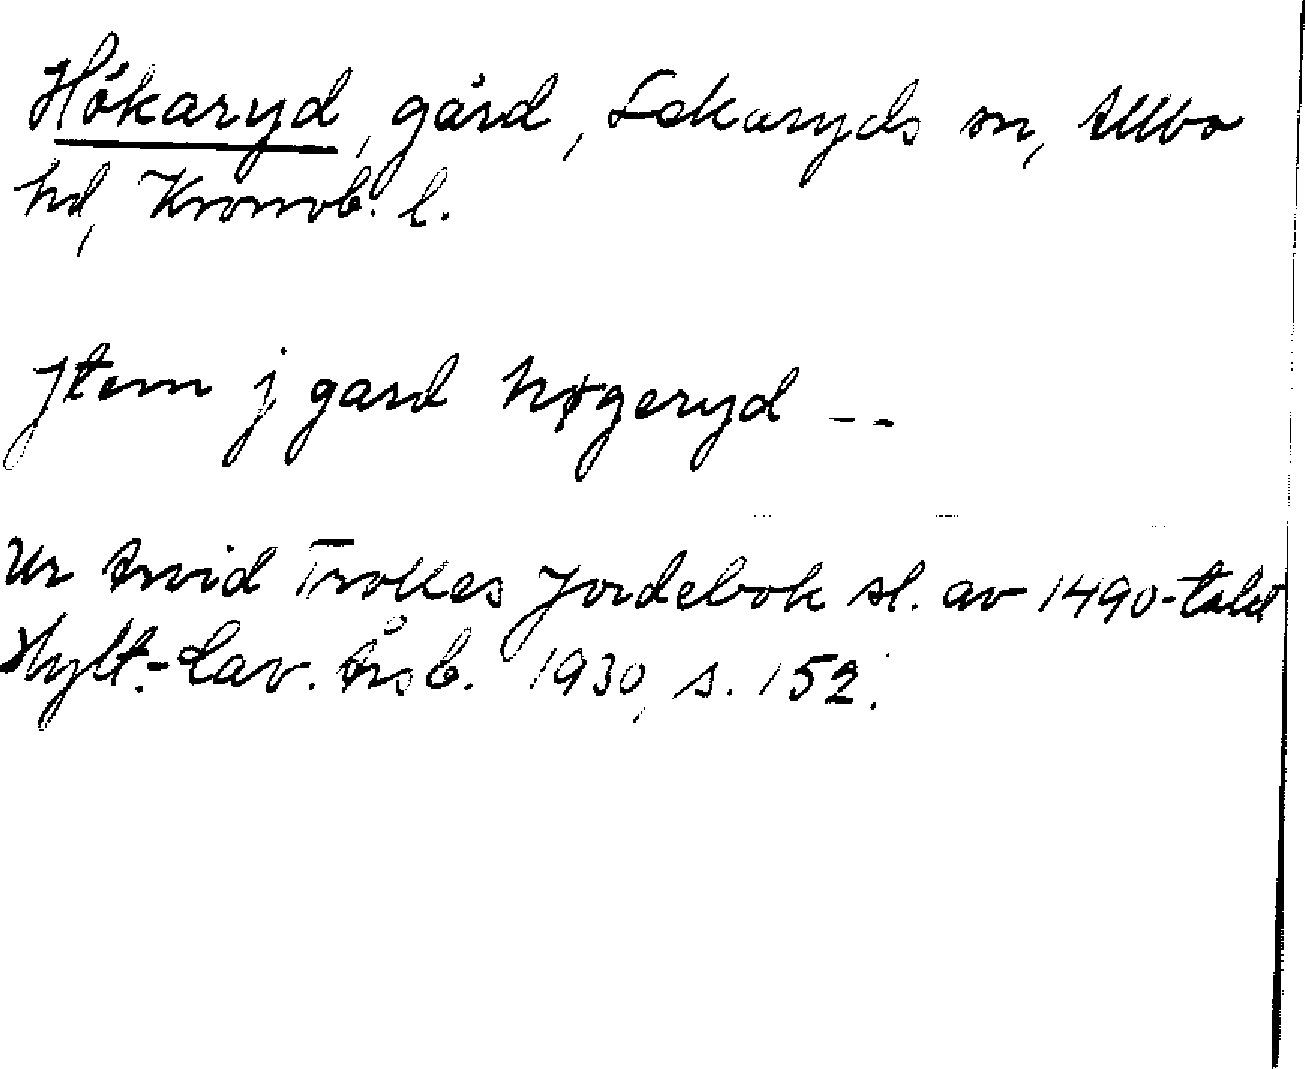 Hökaryd, gård, Lekaryds sn, Allbo
hd, Kronob. l.
Jtem j gard høgeryd --
Ur Arvid Trolles Jordebok sl. av 1490-talet
Hylt.-Cav. Årsb. 1930, s. 152.